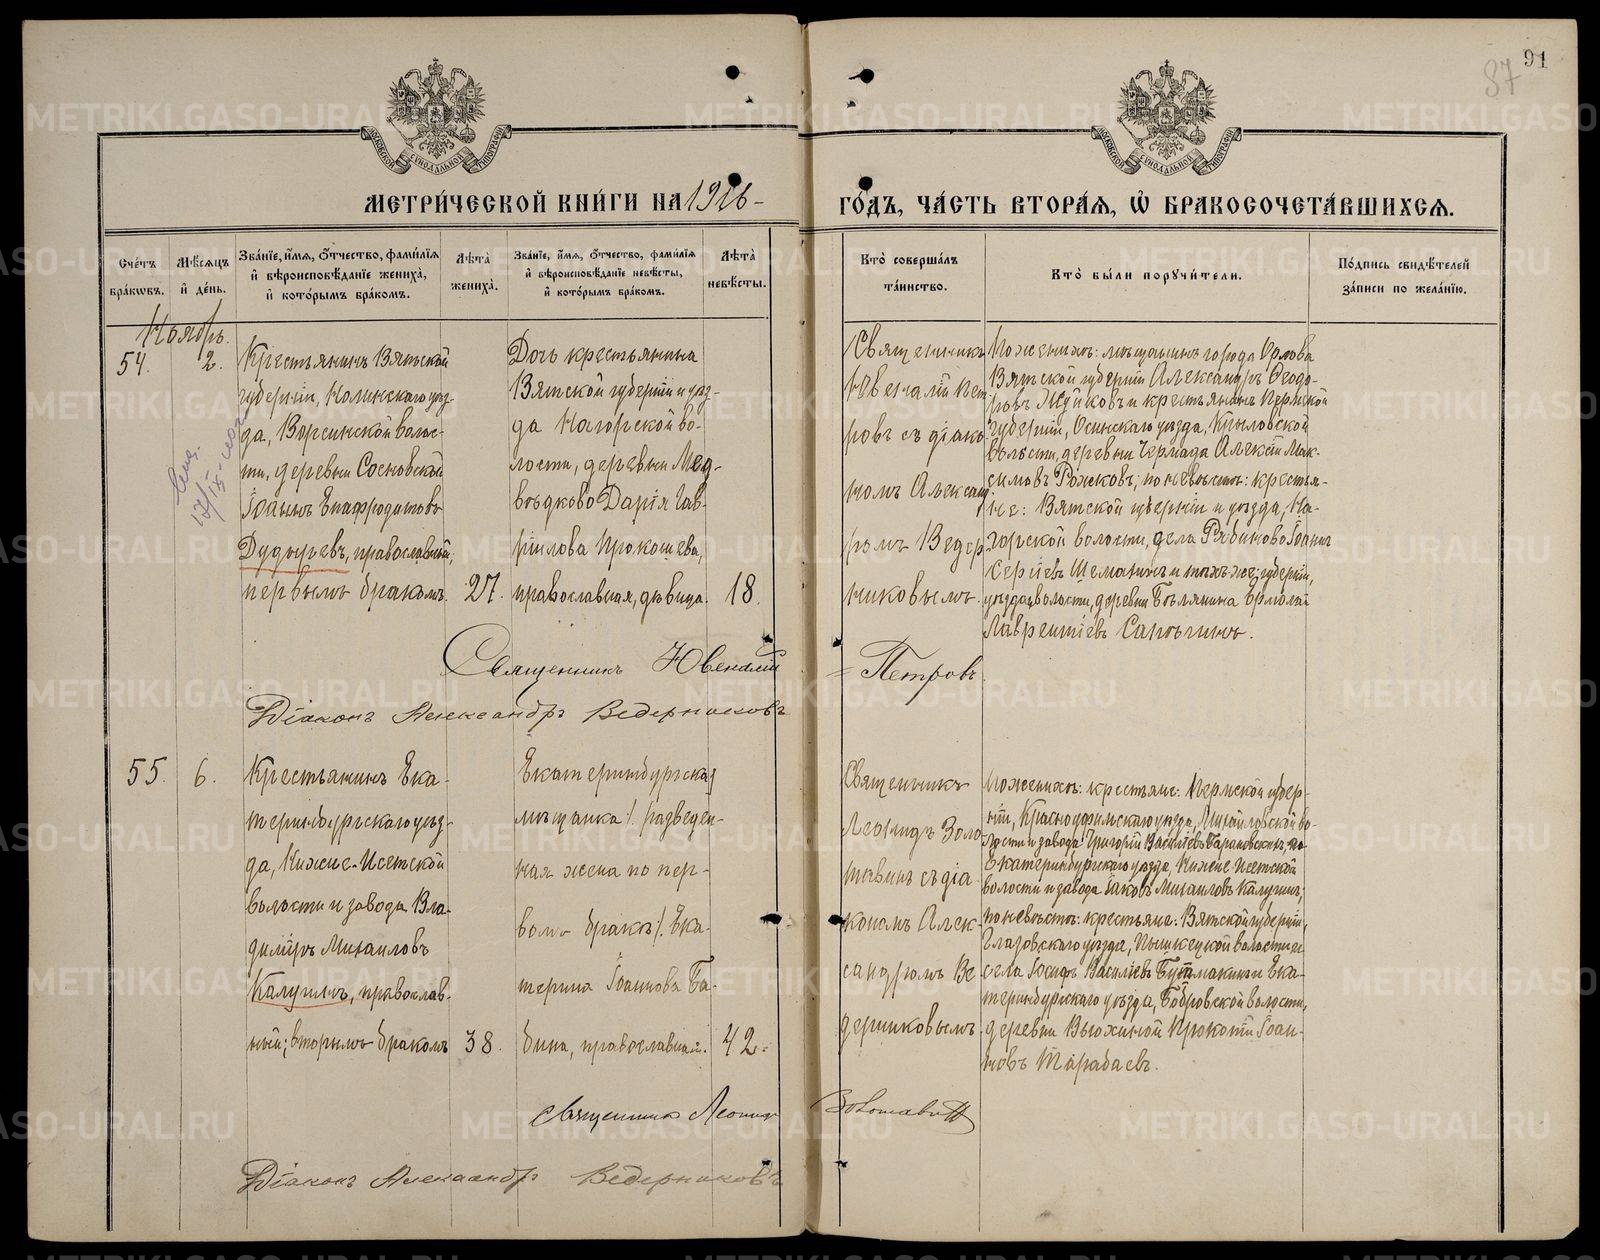 91
87
МОСКОВСКОЙ СѴНОДАЛЬНОЙ ТИПОГРАФІИ
МОСКОВСКОЙ СѴНОДАЛЬНОЙ ТИПОГРАФІИ
МЕТРИ́ЧЕСКОЙ КНИ́ГИ НА 1916 –
ГО́ДЪ, ЧА́СТЬ ВТОРА́Я, Ѡ҆ БРАКОСОЧЕТА́ВШИХСЯ.
Сче́тъ бра́кѡвъ.
Мѣ́сяцъ и҆ де́нь.
Зва́нїе, и҆́мя, о҆́тчество, фами́лїя
и҆ вѣроисповѣ́данїе жениха̀,
и҆ кото́рымъ бра́комъ.
Лѣ́та̀ жениха̀.
Зва́нїе, и҆́мя, о҆́тчество, фами́лїя
и҆ вѣроисповѣ́данїе невѣ́сты,
и҆ кото́рымъ бра́комъ.
Лѣ́та̀ невѣ́сты.
Кто̀ соверша́лъ
та́инство.
Кто̀ бы́ли порꙋчи́тели.
По́дпись свидѣ́телей
за́писи по жела́нїю.
Ноябрь.
54.
2.
Крестьянинъ Вятской
губерніи, Нолинскаго уѣз-
да, Ворсинской волос-
ти, деревни Сосновской
Іоаннъ Епафродитовъ
Дудыревъ, православный,
первымъ бракомъ.
27.
Дочь крестьянина
Вятской губерніи и уѣз-
да Нагорской во-
лости, деревни Мед-
вѣдково Дарія Гав-
ріилова Прокошева,
православная, дѣвица.
18.
Священникъ
Ювеналій Пет-
ровъ съ діако-
номъ Александ-
ромъ Ведер-
никовымъ.
По женихѣ: мѣщанинъ города Орлова
Вятской губерніи Александръ Ѳеодо-
ровъ и крестьянинъ Пермской
губерніи, Осинскаго уѣзда,
волости, деревни Алексій Мак-
симовъ Рожковъ; по невѣстѣ: крестья-
не: Вятской губерніи и уѣзда, На-
горской волости, села Рябиново Іоаннъ
Сергіевъ Шеманинъ и тѣхъ-же: губерніи,
уѣзда и волости, деревни Ермолай
Лаврентіевъ Сапѣгинъ.
Священникъ Ювеналій Петровъ
Діаконъ Александръ Ведерниковъ
55.
6.
Крестьянинъ Ека-
теринбургскаго уѣз-
да, Нижне-Исетской
волости и завода Вла-
диміръ Михаиловъ
Калугинъ, православ-
ный; вторымъ бракомъ
38.
Екатеринбургская
мѣщанка /. разведен-
ная жена по пер-
вому браку /. Ека-
терина Іоаннова Ба-
бина, православная.
42.
Священникъ
Леонидъ Золо-
тавинъ съ діа-
кономъ Алек-
сандромъ Ве-
дерниковымъ.
По женихѣ: крестьяне: Пермской губер-
ніи, Красноуфимскаго уѣзда, Михайловской во-
лости и завода Григорій Василіевъ Барановскихъ, и
Екатеринбургскаго уѣзда, Нижне-Исетской
волости и завода Іаковъ Михаиловъ Калугинъ;
по невѣстѣ: крестьяне: Вятской губерніи,
Глазовскаго уѣзда, Пышкетской волости и
села Іосифъ Василіевъ Бушмакинъ и Ека-
теринбургскаго уѣзда, Бобровской волости,
деревни Вьюхиной Прокопій Іоан-
новъ Тарабаевъ.
Священникъ Леонидъ Золотавинъ
Діаконъ Александръ Ведерниковъ
METRIKI.GASO-URAL.RU